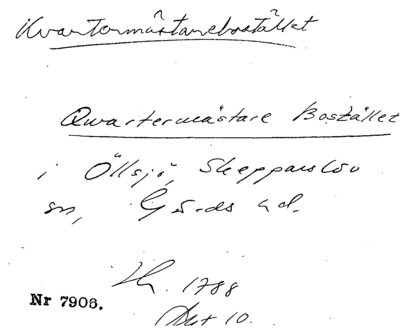 Kvartermästarebostället
Qwartermästare Bostället
i Öllsjö, Skepparslöv
sn, Gärds hd.
1788
Nr 7906.
Akt 10.